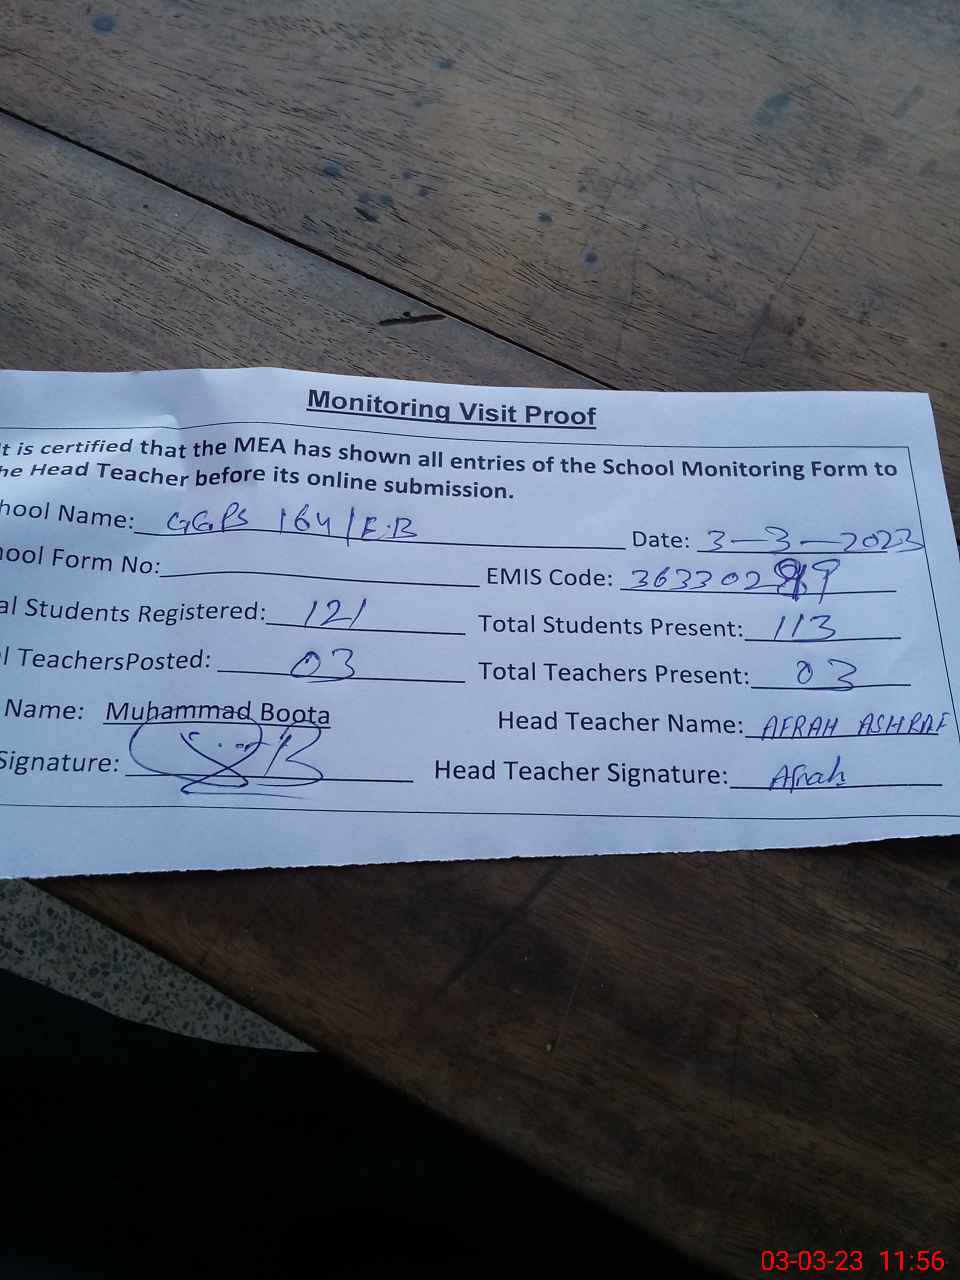 Monitoring Visit Proof
It is certified that the MEA has shown all entries of the School Monitoring Form to
he Head Teacher before its online submission.
hool Name: GGPS 164/E.B Date: 3-3-2023
ool Form No: EMIS Code:
al Students Registered: 121 Total Students Present: 113
l TeachersPosted: 03 Total Teachers Present: 03
Name: Muhammad Boota Head Teacher Name: AFRAH ASHRAF
Signature: Head Teacher Signature: Afrah
03-03-23 11:56